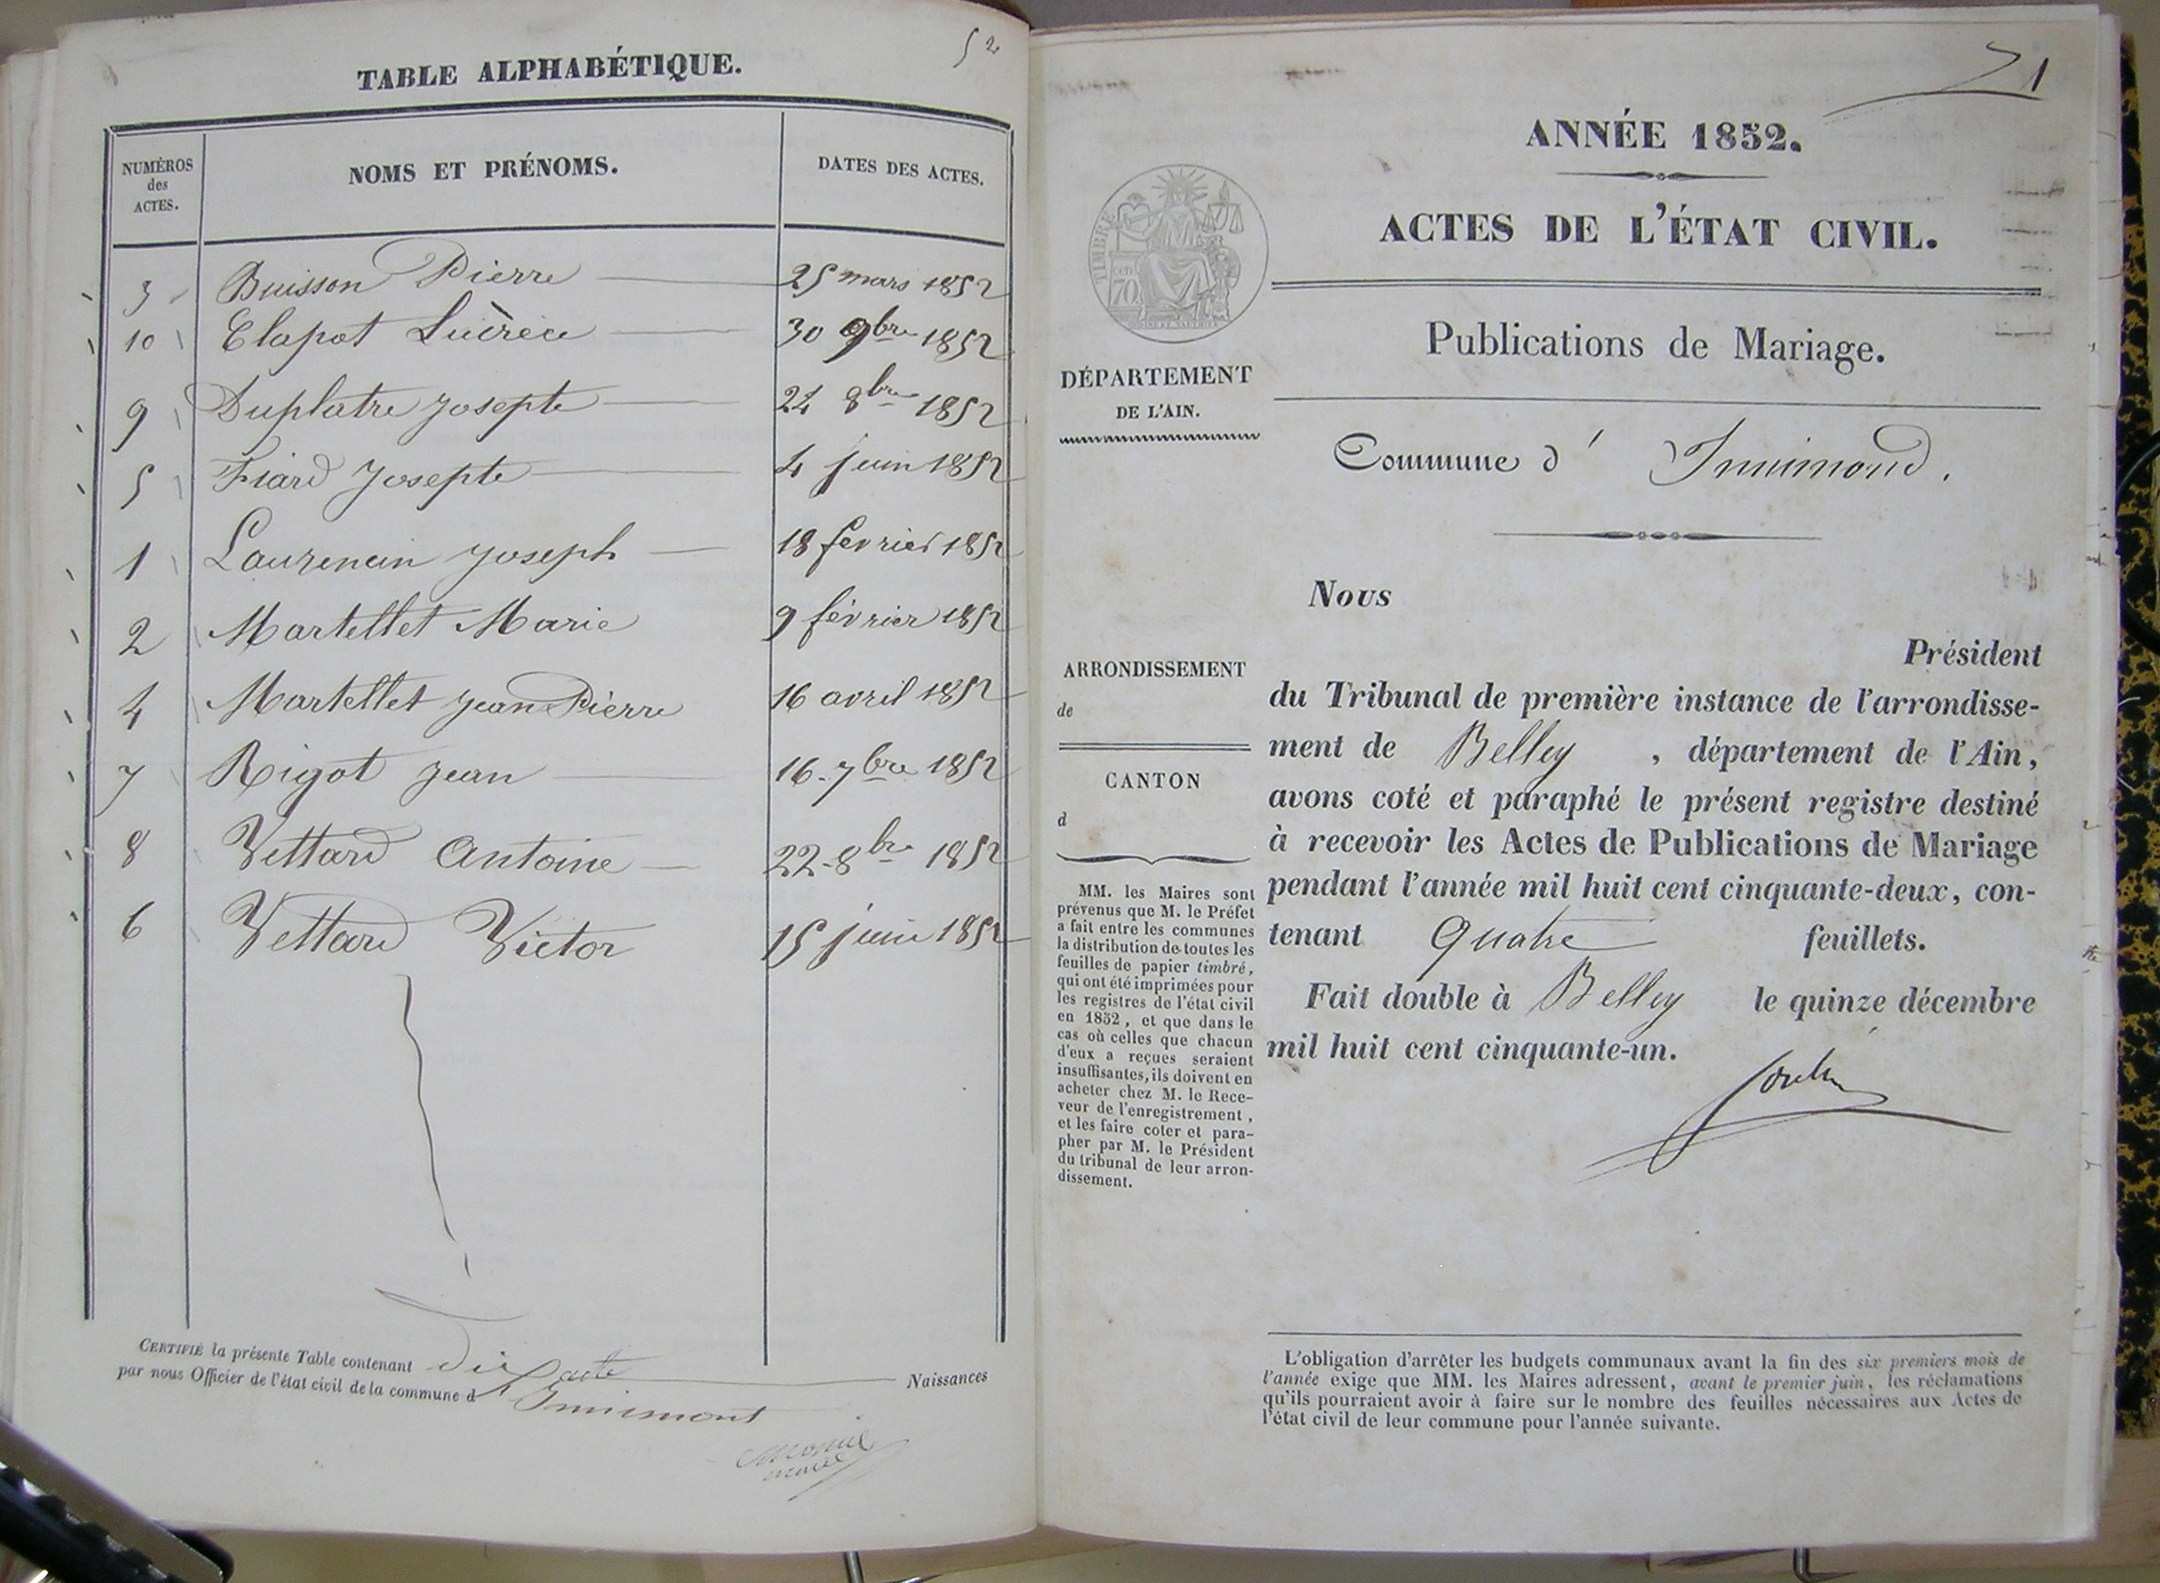 52
TABLE ALPHABÉTIQUE.
NUMÉROS des ACTES. NOMS ET PRÉNOMS. DATES DES ACTES.
3 Buisson Pierre 25 mars 1852
10 Clapot Lucrèce 30 9bre 1852
9 Duplatre Josepte 24 8bre 1852
5 Fiard Josepte 4 juin 1852
1 Laurencin Joseph 18 février 1852
2 Martellet Marie 9 février 1852
4 Martellet Jean Pierre 16 avril 1852
7 Rigot Jean 16-7bre 1852
8 Vettard Antoine 22-8bre 1852
6 Vettard Victor 15 juin 1852
CERTIFIÉ la présente Table contenant dix acte Naissances
par nous Officier de l'état civil de la commune d'Innimont
maire
1
ANNÉE 1852.
ACTES DE L'ÉTAT CIVIL.
Publications de Mariage.
Commune d' Innimond.
TIMBRE
70
DÉPARTEMENT
DE L'AIN.
ARRONDISSEMENT
de
CANTON
d
MM. les Maires sont
prévenus que M. le Préfet
a fait entre les communes
la distribution de toutes les
feuilles de papier timbré,
qui ont été imprimées pour
les registres de l'état civil
en 1852, et que dans le
cas où celles que chacun
d'eux a reçues seraient
insuffisantes, ils doivent en
acheter chez M. le Rece-
veur de l'enregistrement,
et les faire coter et para-
pher par M. le Président
du tribunal de leur arron-
dissement.
Nous
Président
du Tribunal de première instance de l'arrondisse-
ment de Belley , département de l'Ain,
avons coté et paraphé le présent registre destiné
à recevoir les Actes de Publications de Mariage
pendant l'année mil huit cent cinquante-deux, con-
tenant Quatre feuillets.
Fait double à Belley le quinze décembre
mil huit cent cinquante-un.
L'obligation d'arrêter les budgets communaux avant la fin des six premiers mois de
l'année exige que MM. les Maires adressent, avant le premier juin, les réclamations
qu'ils pourraient avoir à faire sur le nombre des feuilles nécessaires aux Actes de
l'état civil de leur commune pour l'année suivante.